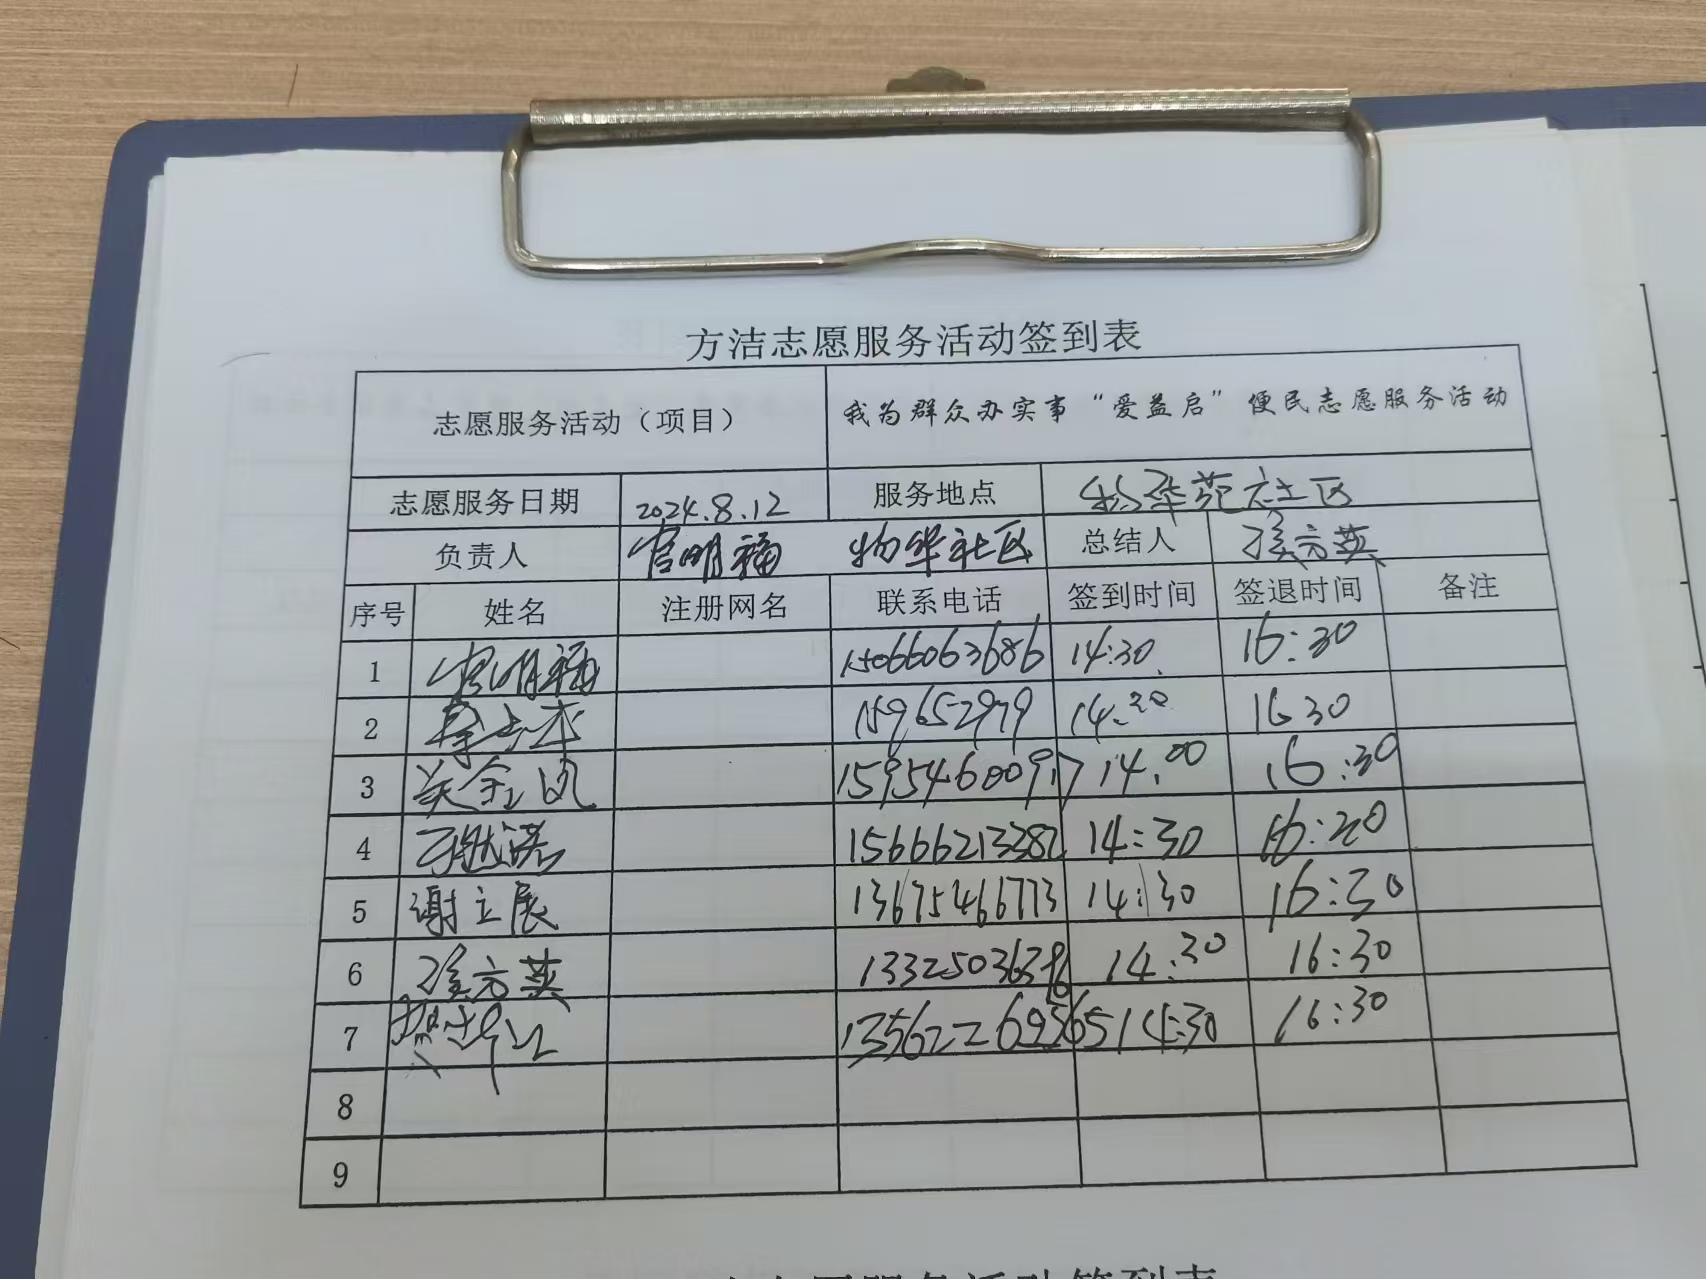 方洁志愿服务活动签到表
志愿服务活动（项目） 我为群众办实事“爱益启”便民志愿服务活动
志愿服务日期 2024.8.12 服务地点 物华苑社区
负责人 官明福 物华社区 总结人 侯方英
序号 姓名 注册网名 联系电话 签到时间 签退时间 备注
1 官明福 15066063686 14:30 16:30
2 159652979 14.30 16 30
3 关金凤 15954600917 14.00 16:30
4 15666213382 14:30 16:20
5 谢立展 13675466773 14:30 16:30
6 侯方英 14:30 16:30
7 14:30 16:30
8
9